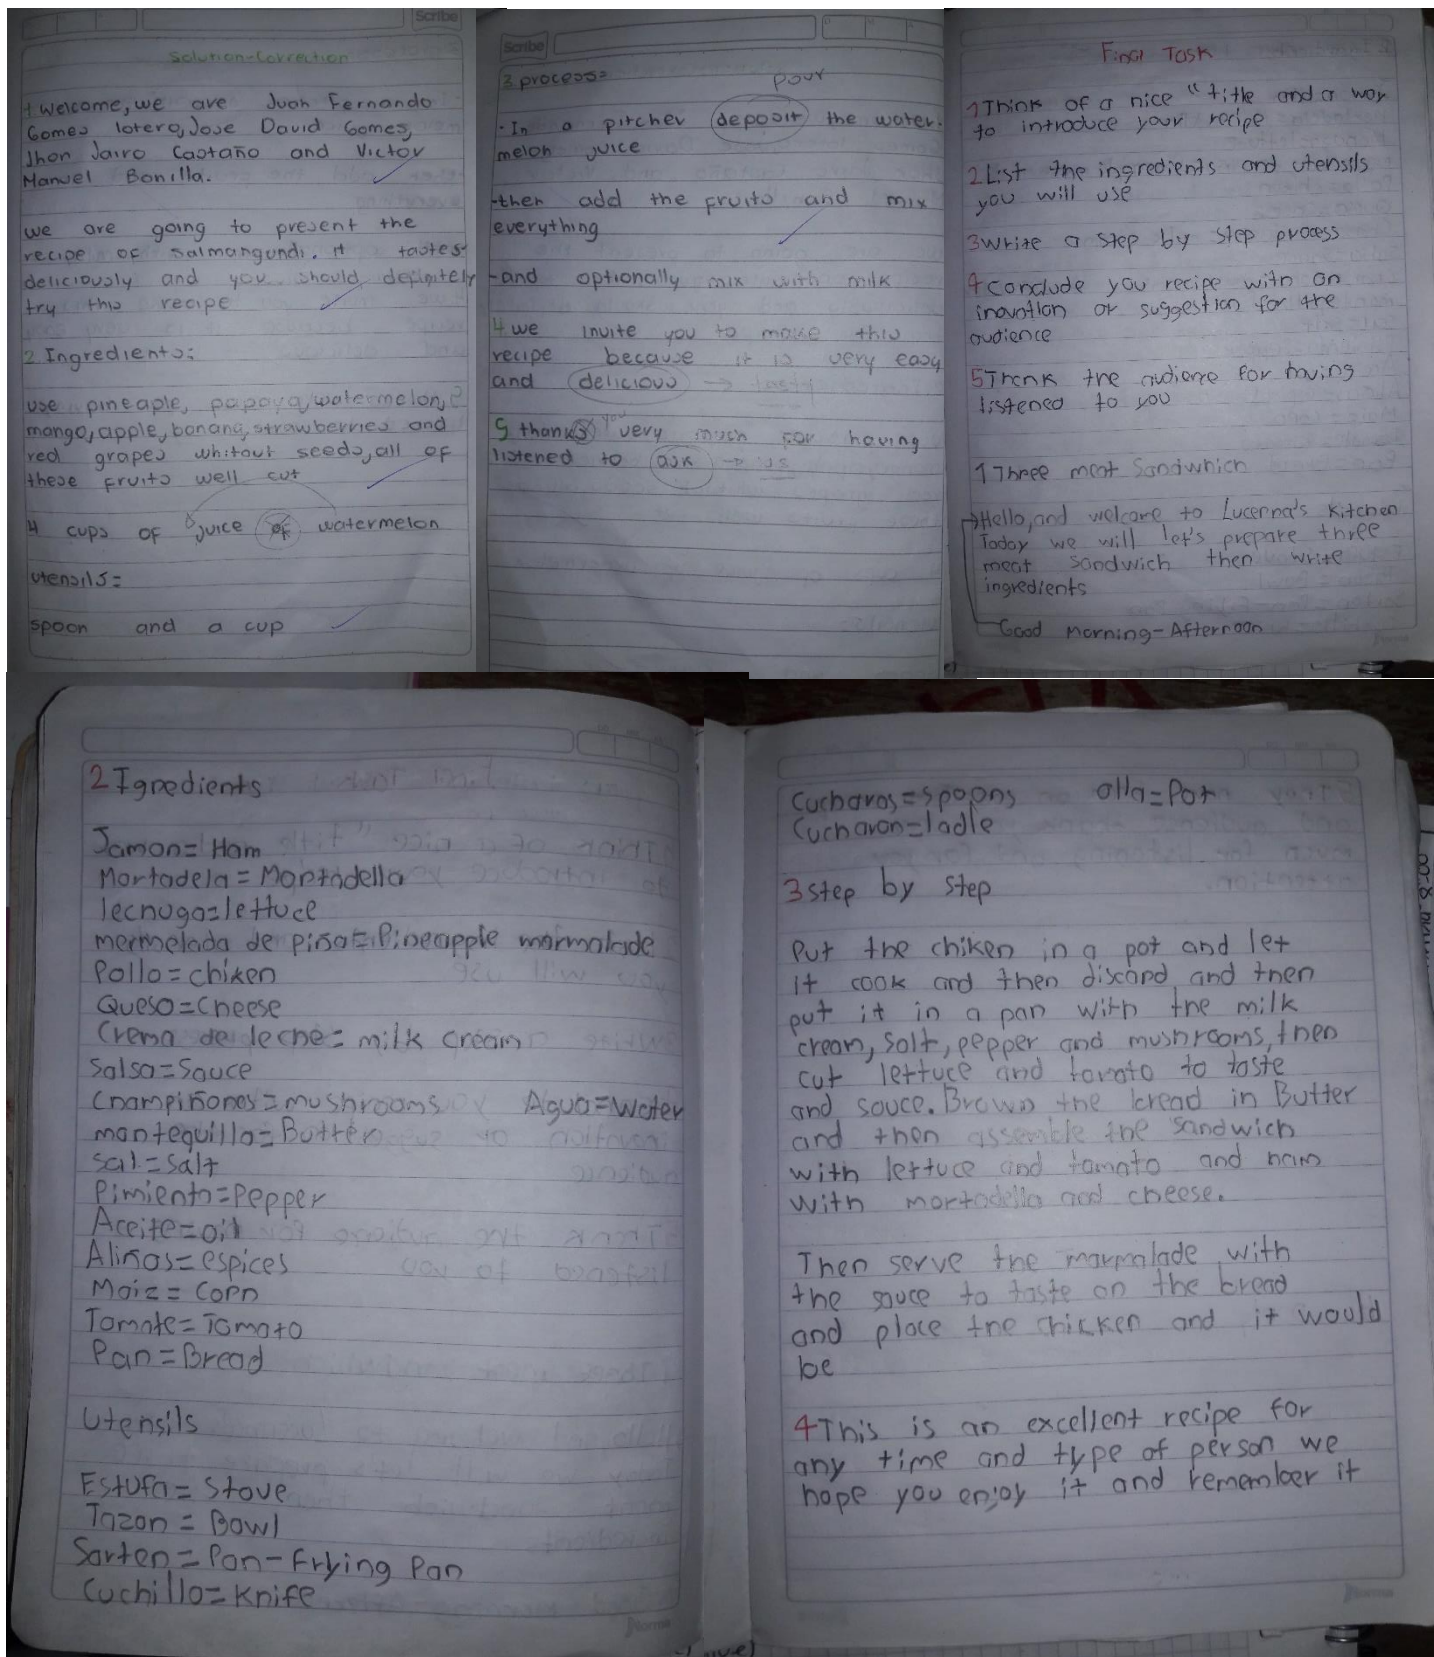 Scribe
Solution-Correction
1 Welcome, we are Juan Fernando
Gomes lotero, Jose David Gomes,
Jhon Jairo Castaño and Victor
Manuel Bonilla.
we are going to present the
recipe of salmangundi. it tastes
deliciously and you should definitely
try this recipe
2 Ingredients:
use pineaple, papaya, watermelon,
mango, apple, banana, strawberries and
red grapes whitout seeds, all of
these fruits well cut
4 cups of juice of watermelon
utensils=
spoon and a cup
Scribe
3 process=
pour
- In a pitcher deposit the water-
melon juice
-then add the fruits and mix
everything
-and optionally mix with milk
4 we invite you to make this
recipe because it is very easy
and delicious → tasty
5 thanks you very much for having
listened to ask → us
Final Task
1 Think of a nice "title and a way
to introduce your recipe
2 List the ingredients and utensils
you will use
3 write a step by step process
4 Conclude you recipe with an
inovation or suggestion for the
audience
5 Thank the audience for having
listened to you
1 Three meat Sandwhich
Hello, and welcome to Lucerna's Kitchen
Today we will let's prepare three
meat sandwich then write
ingredients
Good Morning-Afternoon
2 Igredients
Jamon= Ham
Mortadela = Mortadella
lechuga=lettuce
mermelada de piña= Pineapple marmalade
Pollo = chiken
Queso=Cheese
Crema de leche= milk cream
Salsa=Sauce
Champiñones=mushrooms Agua=Water
mantequilla=Butter
Sal=Salt
Pimienta=Pepper
Aceite=oil
Aliños=espices
Maiz= Corn
Tomate=Tomato
Pan=Bread
Utensils
Estufa= Stove
Tazon = Bowl
Sarten=Pan-Frying Pan
Cuchillo=Knife
Norma
Cucharas=spoons olla=Pot
Cucharon=ladle
3 step by step
Put the chiken in a pot and let
it cook and then discard and then
put it in a pan with the milk
cream, salt, pepper and mushrooms, then
cut lettuce and tomato to taste
and souce. Brown the bread in Butter
and then assemble the sandwich
with lettuce and tamato and ham
with mortadella and cheese.
Then serve the marmalade with
the sauce to taste on the bread
and place the chicken and it would
be
4 This is an excellent recipe for
any time and type of person we
hope you enjoy it and remember it
Norma